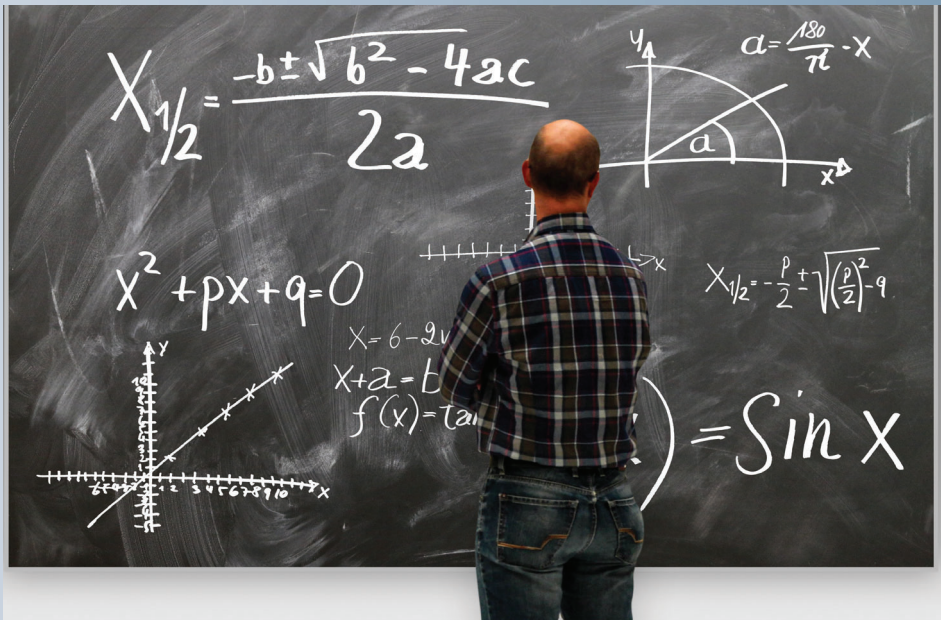 X₁/₂ = (-b ± √(b² - 4ac)) / 2a
y
a = 180/π · x
a
x
x² + px + q = 0
x
X₁/₂ = -p/2 ± √((p/2)² - q)
X = 6 - 2
X + a = b
f(x) = tan
) = Sin x
y
10
1 2 3 4 5 6 7 8 9 10 x